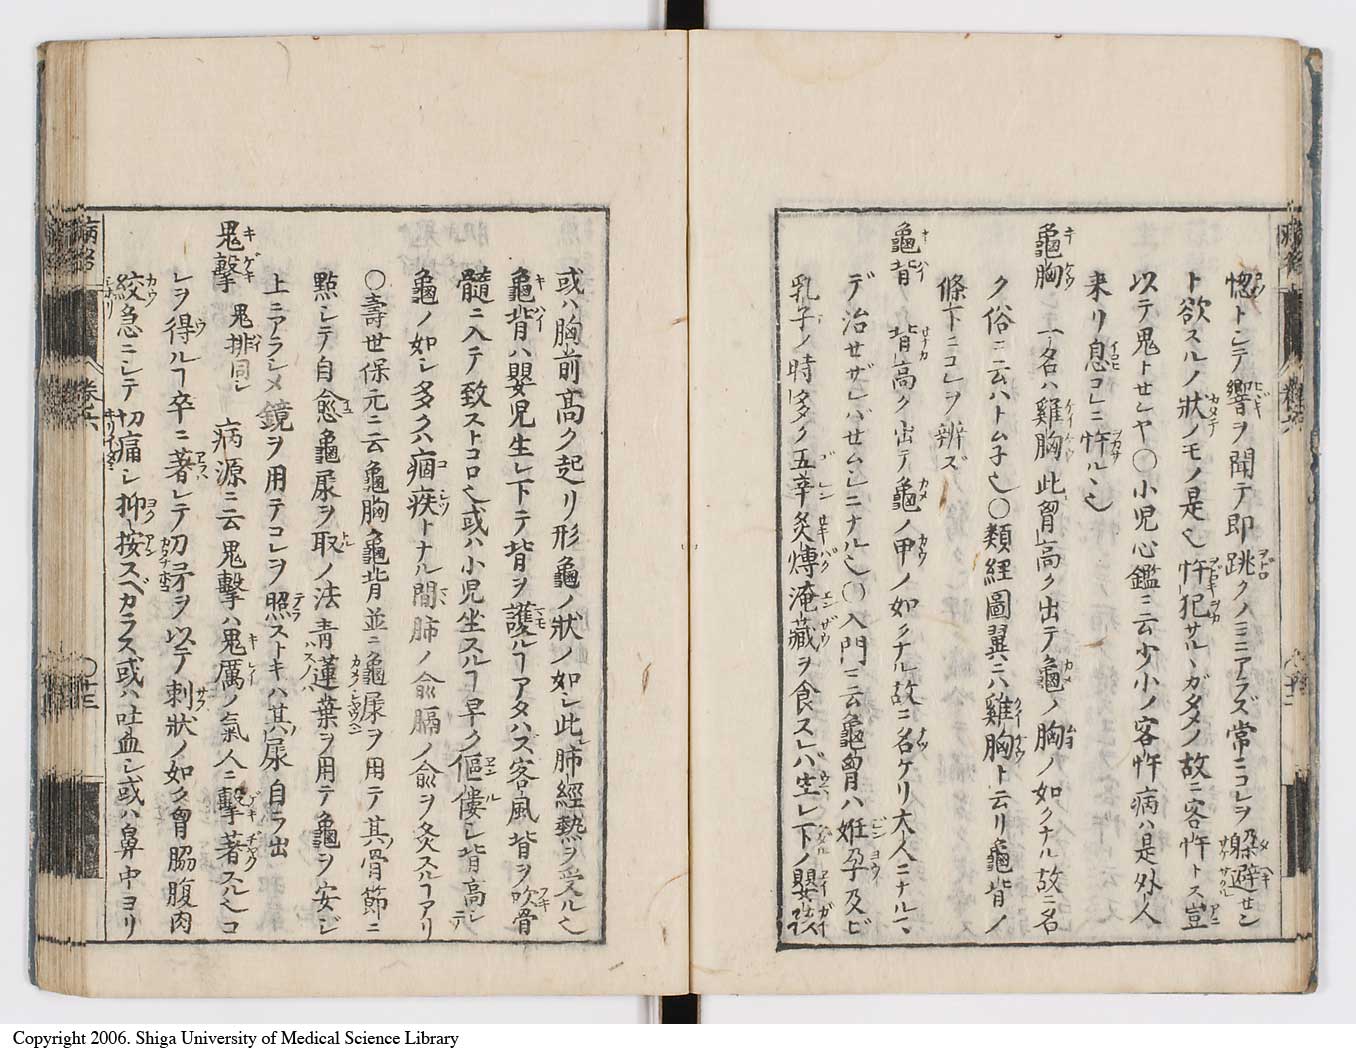 惚トシテ響ヲ聞テ即跳クノミニアラズ常ニコレヲ躱避セン
ト欲スルノ狀ノモノ是也忤犯サルヽガタメノ故ニ客忤トス豈
以テ鬼トセンヤ〇小児心鑑ニ云少小ノ客忤病ハ是外人
来リ息コレニ忤ルヽ也
龜胸 一名ハ雞胸此胷高ク出テ龜ノ胸ノ如クナル故ニ名
ク俗ニ云ハトムネ也〇類経圖翼ニハ雞胸ト云リ龜背ノ
條下ニコレヲ辨ズ
龜背 背高ク出テ龜ノ甲ノ如クナル故ニ名ケリ大人ニナルマ
デ治セザレバセムシニナル也〇入門ニ云龜胷ハ姙孕及ビ
乳子ノ時多ク五辛炙煿淹藏ヲ食スレバ生レ下ノ嬰孩
或ハ胸前高ク起リ形龜ノ狀ノ如シ此肺經熱ヲ受ル也
龜背ハ嬰児生レ下テ背ヲ護ルヿアタハズ客風背ヲ吹骨
髓ニ入テ致ストコロ也或ハ小児坐スルヿ早ク傴僂シ背高シ
龜ノ如シ多クハ痼疾トナル間肺ノ兪膈ノ兪ヲ灸スルヿアリ
〇壽世保元ニ云龜胸龜背並ニ龜尿ヲ用テ其骨節ニ
點シテ自愈龜尿ヲ取ノ法青蓮葉ヲ用テ龜ヲ安ジ
上ニアラシメ鏡ヲ用テコレヲ照ストキハ其尿自ラ出
鬼擊 鬼排同シ 病源ニ云鬼擊ハ鬼厲ノ氣人ニ擊著スル也コ
レヲ得ルヿ卒ニ著レテ刀矛ヲ以テ刺狀ノ如ク胷脇腹肉
絞急ニシテ切痛シ抑按スベカラス或ハ吐血シ或ハ鼻中ヨリ
病名
卷六
〇廿三
Copyright 2006. Shiga University of Medical Science Library